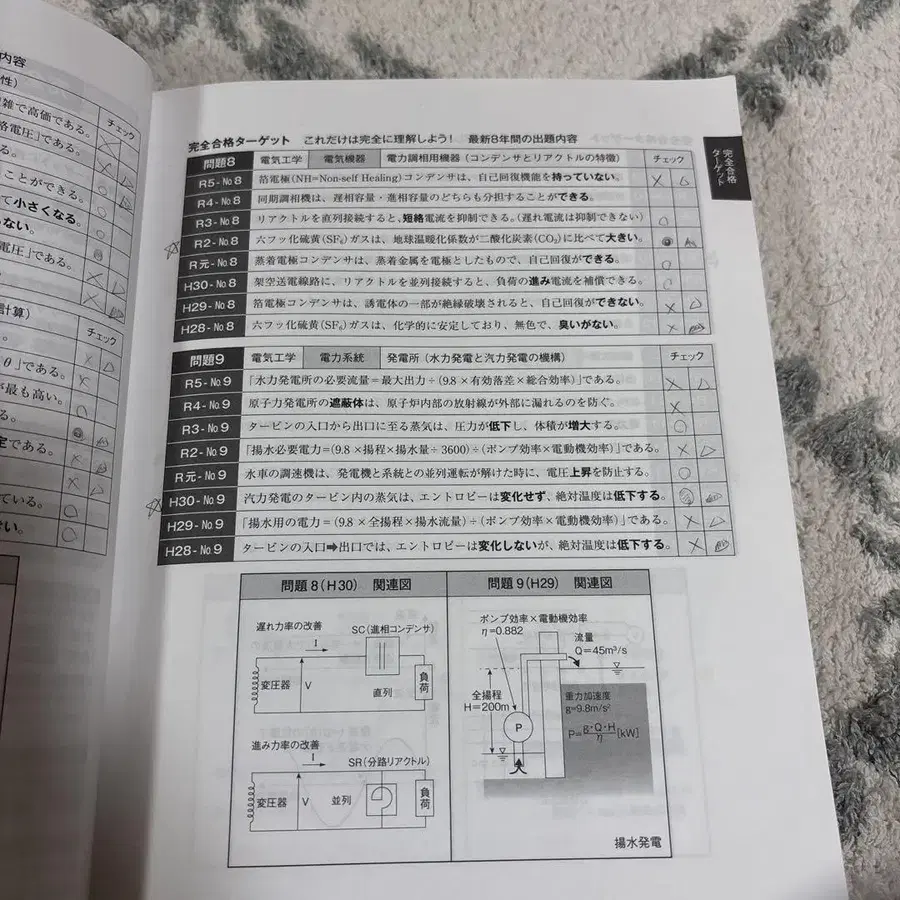 内容
性)
雑で高価である。
チェック
格電圧」である。
る。
ことができる。
て小さくなる。
ない。
電圧」である。
る。
計算)
チェック
る。
θ」である。
が最も高い。
る。
定である。
ている。
完全合格ターゲット これだけは完全に理解しよう! 最新8年間の出題内容
完全合格ターゲット
問題8 電気工学 電気機器 電力調相用機器(コンデンサとリアクトルの特徴) チェック
R5-No.8 箔電極(NH=Non-self Healing)コンデンサは、自己回復機能を持っていない。 × △
R4-No.8 同期調相機は、遅相容量・進相容量のどちらも分担することができる。 ○
R3-No.8 リアクトルを直列接続すると、短絡電流を抑制できる。(遅れ電流は抑制できない) ○
☆ R2-No.8 六フッ化硫黄(SF₆)ガスは、地球温暖化係数が二酸化炭素(CO₂)に比べて大きい。
R元-No.8 蒸着電極コンデンサは、蒸着金属を電極としたもので、自己回復ができる。 ○
H30-No.8 架空送電線路に、リアクトルを並列接続すると、負荷の進み電流を補償できる。 ○
H29-No.8 箔電極コンデンサは、誘電体の一部が絶縁破壊されると、自己回復ができない。 × △
H28-No.8 六フッ化硫黄(SF₆)ガスは、化学的に安定しており、無色で、臭いがない。 ×
問題9 電気工学 電力系統 発電所(水力発電と汽力発電の機構) チェック
R5-No.9 「水力発電所の必要流量=最大出力÷(9.8×有効落差×総合効率)」である。 × △
R4-No.9 原子力発電所の遮蔽体は、原子炉内部の放射線が外部に漏れるのを防ぐ。 ×
R3-No.9 タービンの入口から出口に至る蒸気は、圧力が低下し、体積が増大する。 ○
R2-No.9 「揚水必要電力=(9.8×揚程×揚水量÷3600)÷(ポンプ効率×電動機効率)」である。 × △
R元-No.9 水車の調速機は、発電機と系統との並列運転が解けた時に、電圧上昇を防止する。 ○
☆ H30-No.9 汽力発電のタービン内の蒸気は、エントロピーは変化せず、絶対温度は低下する。
H29-No.9 「揚水用の電力=(9.8×全揚程×揚水流量)÷(ポンプ効率×電動機効率)」である。 × △
H28-No.9 タービンの入口➡出口では、エントロピーは変化しないが、絶対温度は低下する。 ×
問題8(H30) 関連図
遅れ力率の改善
SC(進相コンデンサ)
I
変圧器
V
直列
負荷
進み力率の改善
SR(分路リアクトル)
I
変圧器
V
並列
負荷
問題9(H29) 関連図
ポンプ効率×電動機効率
η=0.882
流量
Q=45m³/s
全揚程
H=200m
P
重力加速度
g=9.8m/s²
P=g·Q·H/η[kW]
揚水発電